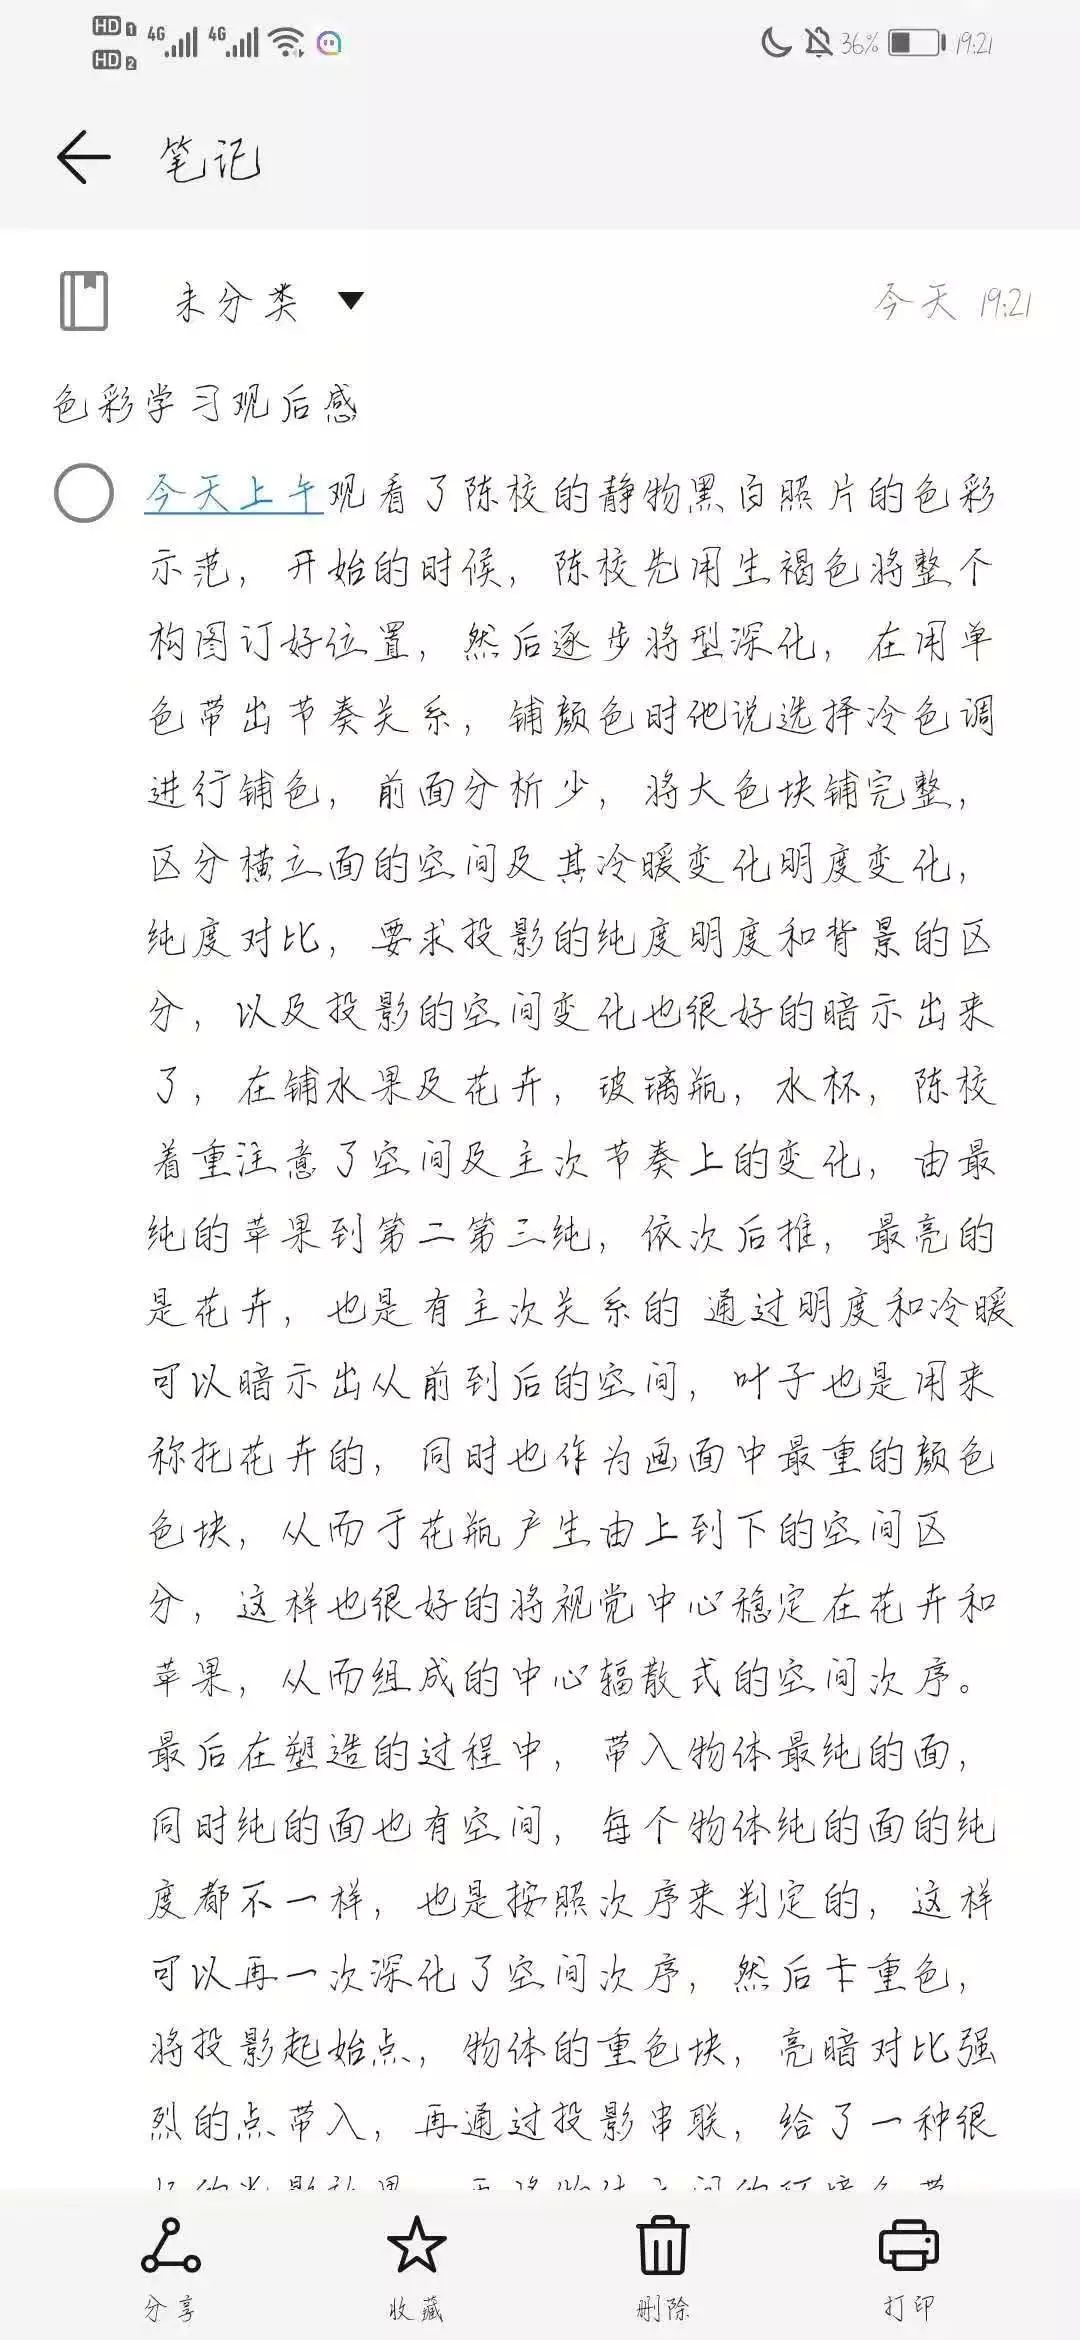 HD 1 4G 4G 36% 19:21
HD 2
笔记
未分类 今天 19:21
色彩学习观后感
今天上午观看了陈校的静物黑白照片的色彩
示范，开始的时候，陈校先用生褐色将整个
构图订好位置，然后逐步将型深化，在用单
色带出节奏关系，铺颜色时他说选择冷色调
进行铺色，前面分析少，将大色块铺完整，
区分横立面的空间及其冷暖变化明度变化，
纯度对比，要求投影的纯度明度和背景的区
分，以及投影的空间变化也很好的暗示出来
了，在铺水果及花卉，玻璃瓶，水杯，陈校
着重注意了空间及主次节奏上的变化，由最
纯的苹果到第二第三纯，依次后推，最亮的
是花卉，也是有主次关系的 通过明度和冷暖
可以暗示出从前到后的空间，叶子也是用来
称托花卉的，同时也作为画面中最重的颜色
色块，从而于花瓶产生由上到下的空间区
分，这样也很好的将视觉中心稳定在花卉和
苹果，从而组成的中心辐散式的空间次序。
最后在塑造的过程中，带入物体最纯的面，
同时纯的面也有空间，每个物体纯的面的纯
度都不一样，也是按照次序来判定的，这样
可以再一次深化了空间次序，然后卡重色，
将投影起始点，物体的重色块，亮暗对比强
烈的点带入，再通过投影串联，给了一种很
分享 收藏 删除 打印